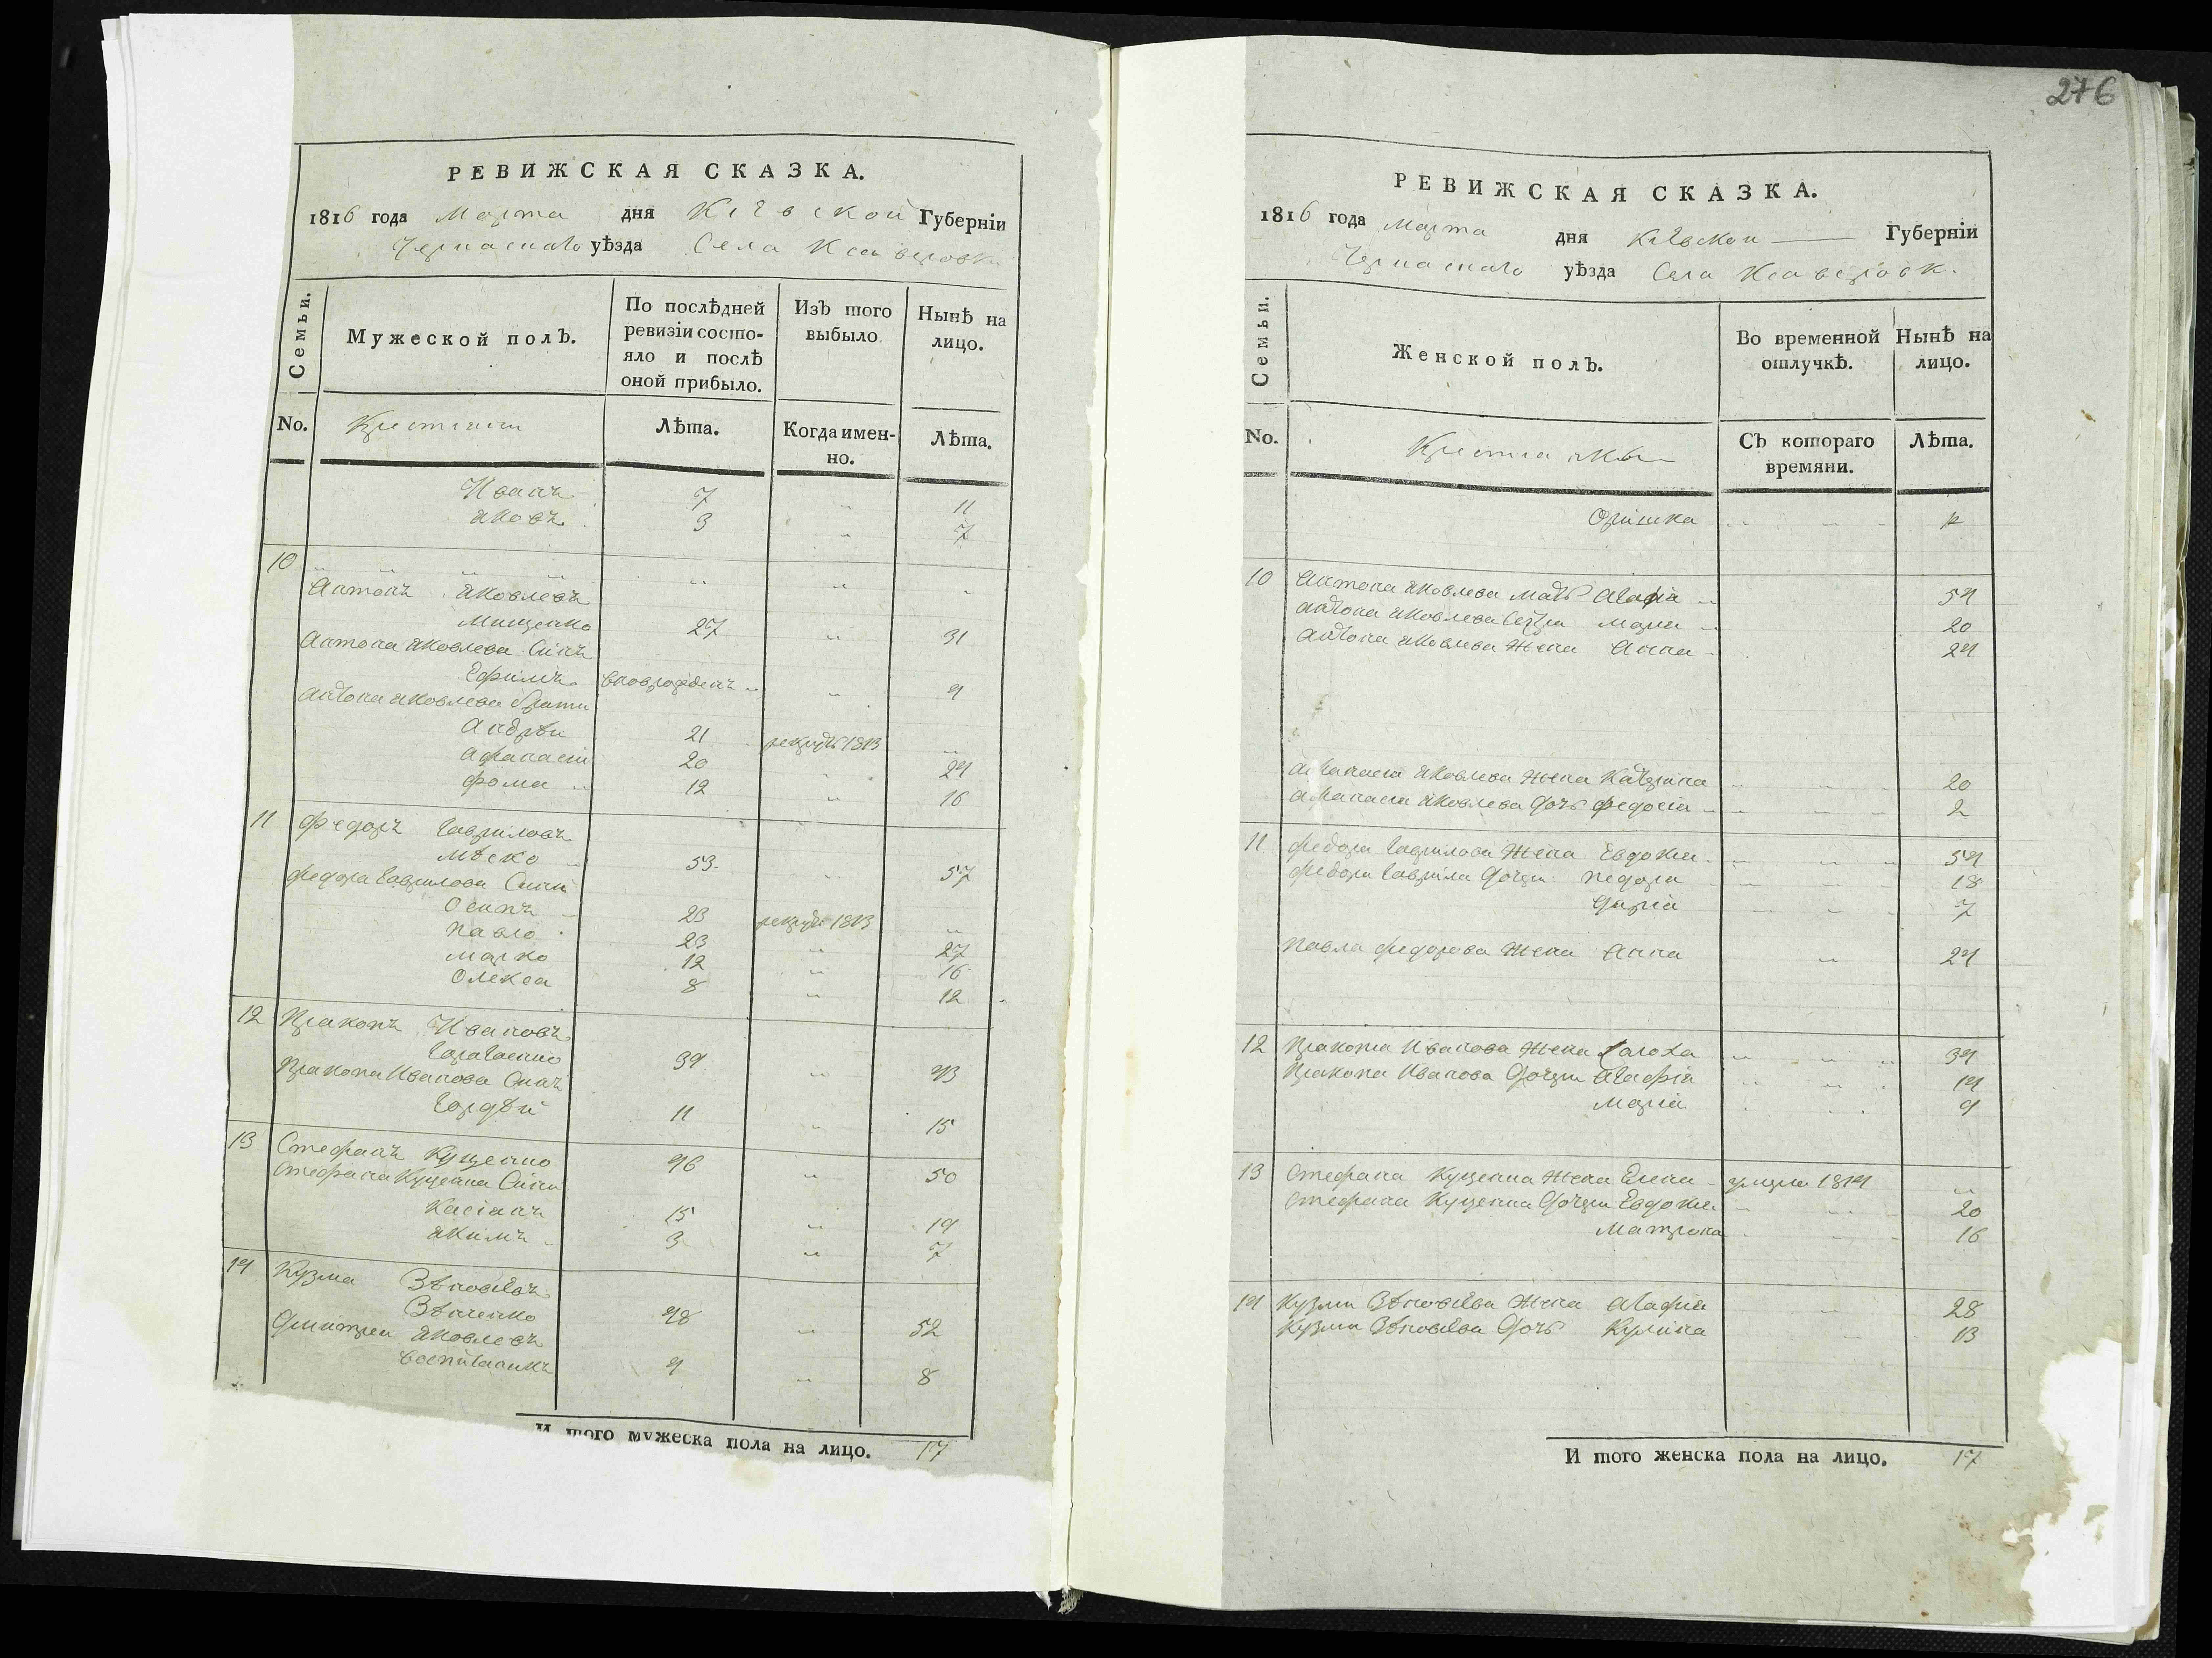 276
РЕВИЖСКАЯ СКАЗКА.
1816 года Марта дня Кіевской Губерніи
Черкаскаго уѣзда Села Ксаверовки
Семьи.
Мужеской полъ.
По послѣдней ревизіи состояло и послѣ оной прибыло.
Изъ того выбыло
Нынѣ на лицо.
No.
Крестяни
Лѣта.
Когда именно.
Лѣта.
Иванъ 7 11
Яковъ 3 7
10
Антонъ Яковлевъ
Мищенко 27 31
Антона Яковлева Синъ
Ефимъ вноврожденъ 4
Антона Яковлева брати
Андрѣи 21 рекрутъ 1813
Афанасій 20 24
Фома 12 16
11 Федоръ Гавриловъ
53 57
Федора Гаврилова Сини
Осипъ 23 рекрутъ 1813
Павло 23 27
Марко 12 16
Олекса 8 12
12 Пракопъ Ивановъ
39 43
Пракопа Иванова Синъ
Гордѣй 11 15
13 Стефанъ Куценко 46 50
Стефана Куценка Сини
Касіанъ 15 19
Якимъ 3 7
14 Кузма Зѣновіевъ
Зѣненко 48 52
Дмитреи Яковлевъ
воспитаникъ 4 8
И того мужеска пола на лицо. 17
РЕВИЖСКАЯ СКАЗКА.
1816 года Марта дня Кіевской Губерніи
Черкаскаго уѣзда Села Ксаверовк.
Семьи.
Женской полъ.
Во временной отлучкѣ.
Нынѣ на лицо.
No.
Крестянки
Съ котораго времяни.
Лѣта.
Оришка
10 Антона Яковлева мать Агафія 54
Антона Яковлева Сестра Мария 20
Антона Яковлева Жена Анна 24
Афанасія Яковлева Жена Катерина 20
Афанасія Яковлева Дочь Федосія 2
11 Федора Гаврилова Жена Евдокия 54
Федора Гаврила Дочери Недора 18
Дарія 7
Павла Федорова Жена Анна 24
12 Пракопа Иванова Жена 34
Пракопа Иванова Дочери Агафія 14
Марія 9
13 Стефана Куценка Жена Елена умерла 1814
Стефана Куценка Дочери Евдокия 20
Матрона 16
14 Кузми Зѣновіева Жена Агафия 28
Кузми Зѣновіева Дочь Кулина 13
И того женска пола на лицо. 17